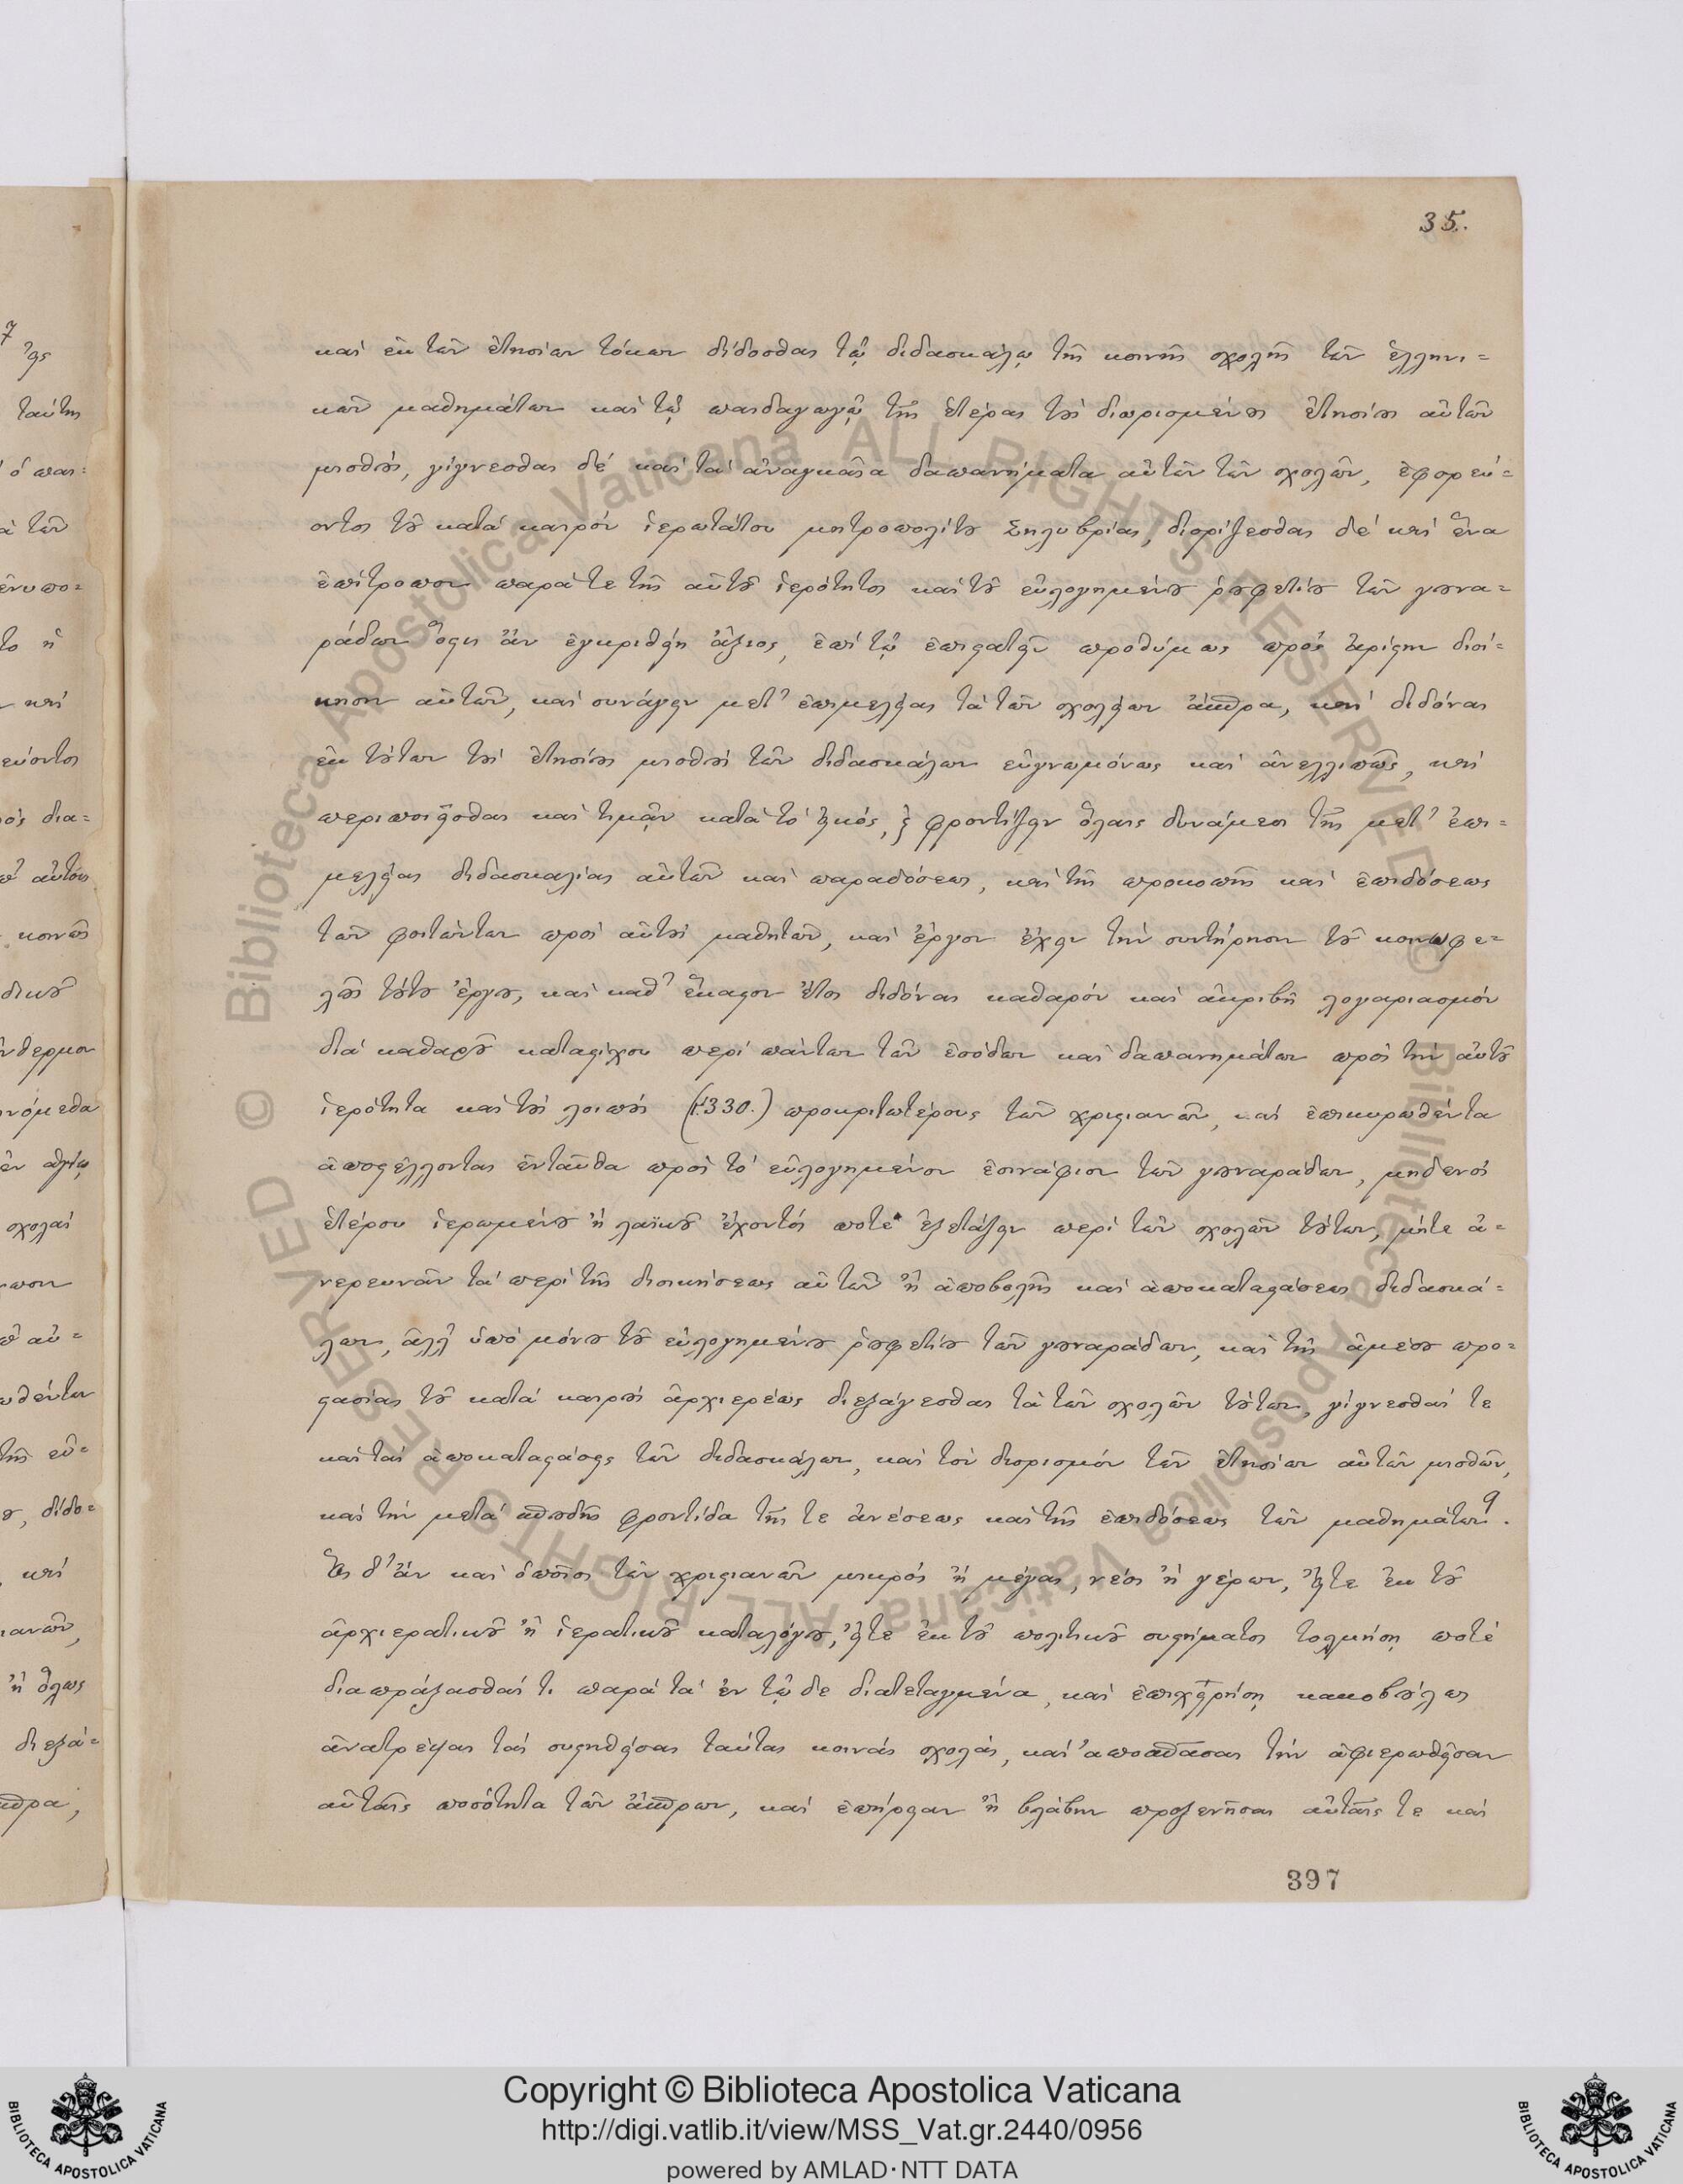 35.
καὶ ἐκ τῶν ἐτησίων τόκων δίδοσθαι τῷ διδασκάλῳ τῆς κοινῆς σχολῆς τῶν ἑλληνι=
κῶν μαθημάτων καὶ τῷ παιδαγωγῷ τῆς ἑτέρας τοὺς διωρισμένους ἐτησίους αὐτῶν
μισθούς, γίγνεσθαι δέ καὶ τὰ ἀναγκαῖα δαπανήματα αὐτῶν τῶν σχολῶν, ἐφορεύ=
οντος τοῦ κατά καιρόν ἱερωτάτου μητροπολίτου Σηλυβρίας, διορίζεσθαι δέ καὶ ἕνα
ἐπίτροπον παρά τε τῆς αὐτοῦ ἱερότητος καὶ τοῦ εὐλογημένου ῥουφετίου τῶν γουνα=
ράδων ὅστις ἄν ἐγκριθῇ ἄξιος, ἐπὶ τῷ ἐπιστατεῖν προθύμως πρός ἀρίστην διοί=
κησιν αὐτῶν, καὶ συνάγειν μετ' ἐπιμελείας τὰ τῶν σχολείων ἄσπρα, καὶ διδόναι
ἐκ τούτων τοὺς ἐτησίους μισθοὺς τῶν διδασκάλων εὐγνωμόνως καὶ ἀνελλιπῶς, καὶ
περιποιεῖσθαι καὶ τιμᾷν κατὰ τὸ εἰκός, ϗ φροντίζειν ὅλαις δυνάμεσι τῆς μετ' ἐπι=
μελείας διδασκαλίας αὐτῶν καὶ παραδόσεως, καὶ τῆς προκοπῆς καὶ ἐπιδόσεως
τῶν φοιτώντων πρὸς αὐτοὺς μαθητῶν, καὶ ἔργον ἔχειν τὴν συντήρησιν τοῦ κοινωφε=
λοῦς τούτου ἔργου, καὶ καθ' ἕκαστον ἔτος διδόναι καθαρόν καὶ ἀκριβῆ λογαριασμόν
διά καθαροῦ καταστίχου περί πάντων τῶν ἐσόδων καὶ δαπανημάτων πρὸς τὴν αὐτοῦ
ἱερότητα καὶ τοὺς λοιποὺς (330.) προκριτωτέρους τῶν χριστιανῶν, καὶ ἐπικυρωθέντα
ἀποστέλλοντας ἐνταῦθα πρὸς τὸ εὐλογημένον ἐσινάφιον τῶν γουναράδων, μηδενός
ἑτέρου ἱερωμένου ἢ λαϊκοῦ ἔχοντός ποτε ἐξετάζειν περί τῶν σχολῶν τούτων, μήτε ἀ=
νερευνᾶν τά περὶ τῆς διοικήσεως αὐτῶν ἢ ἀποβολῆς καὶ ἀποκαταστάσεως διδασκά=
λων, ἀλλ' ὑπὸ μόνου τοῦ εὐλογημένου ῥουφετίου τῶν γουναράδων, καὶ τῆς ἀμέσου προ=
στασίας τοῦ κατά καιρούς ἀρχιερέως διεξάγεσθαι τὰ τῶν σχολῶν τούτων, γίγνεσθαί τε
καὶ τὰς ἀποκαταστάσεις τῶν διδασκάλων, καὶ τὸν διορισμόν τῶν ἐτησίων αὐτῶν μισθῶν,
καὶ τὴν μετὰ σπουδῆς φροντίδα τῆς τε ἀνέσεως καὶ τῆς ἐπιδόσεως τῶν μαθημάτων⁹.
Ὃς δ' ἄν καὶ ὁποῖος τῶν χριστιανῶν μικρός ἢ μέγας, νέος ἢ γέρων, εἴτε ἐκ τοῦ
ἀρχιερατικοῦ ἢ ἱερατικοῦ καταλόγου, εἴτε ἐκ τοῦ πολιτικοῦ συστήματος τολμήσῃ ποτέ
διαπράξασθαί τι παρά τὰ ἐν τῷδε διατεταγμένα, καὶ ἐπιχειρήσῃ κακοβούλως
ἀνατρέψαι τὰς συστηθείσας ταύτας κοινάς σχολάς, καὶ ἀποσπάσαι τὴν ἀφιερωθεῖσαν
αὐταῖς ποσότητα τῶν ἄσπρων, καὶ ἐπήρειαν ἢ βλάβην προξενῆσαι αὐταῖς τε καὶ
397
Copyright © Biblioteca Apostolica Vaticana
http://digi.vatlib.it/view/MSS_Vat.gr.2440/0956
powered by AMLAD·NTT DATA